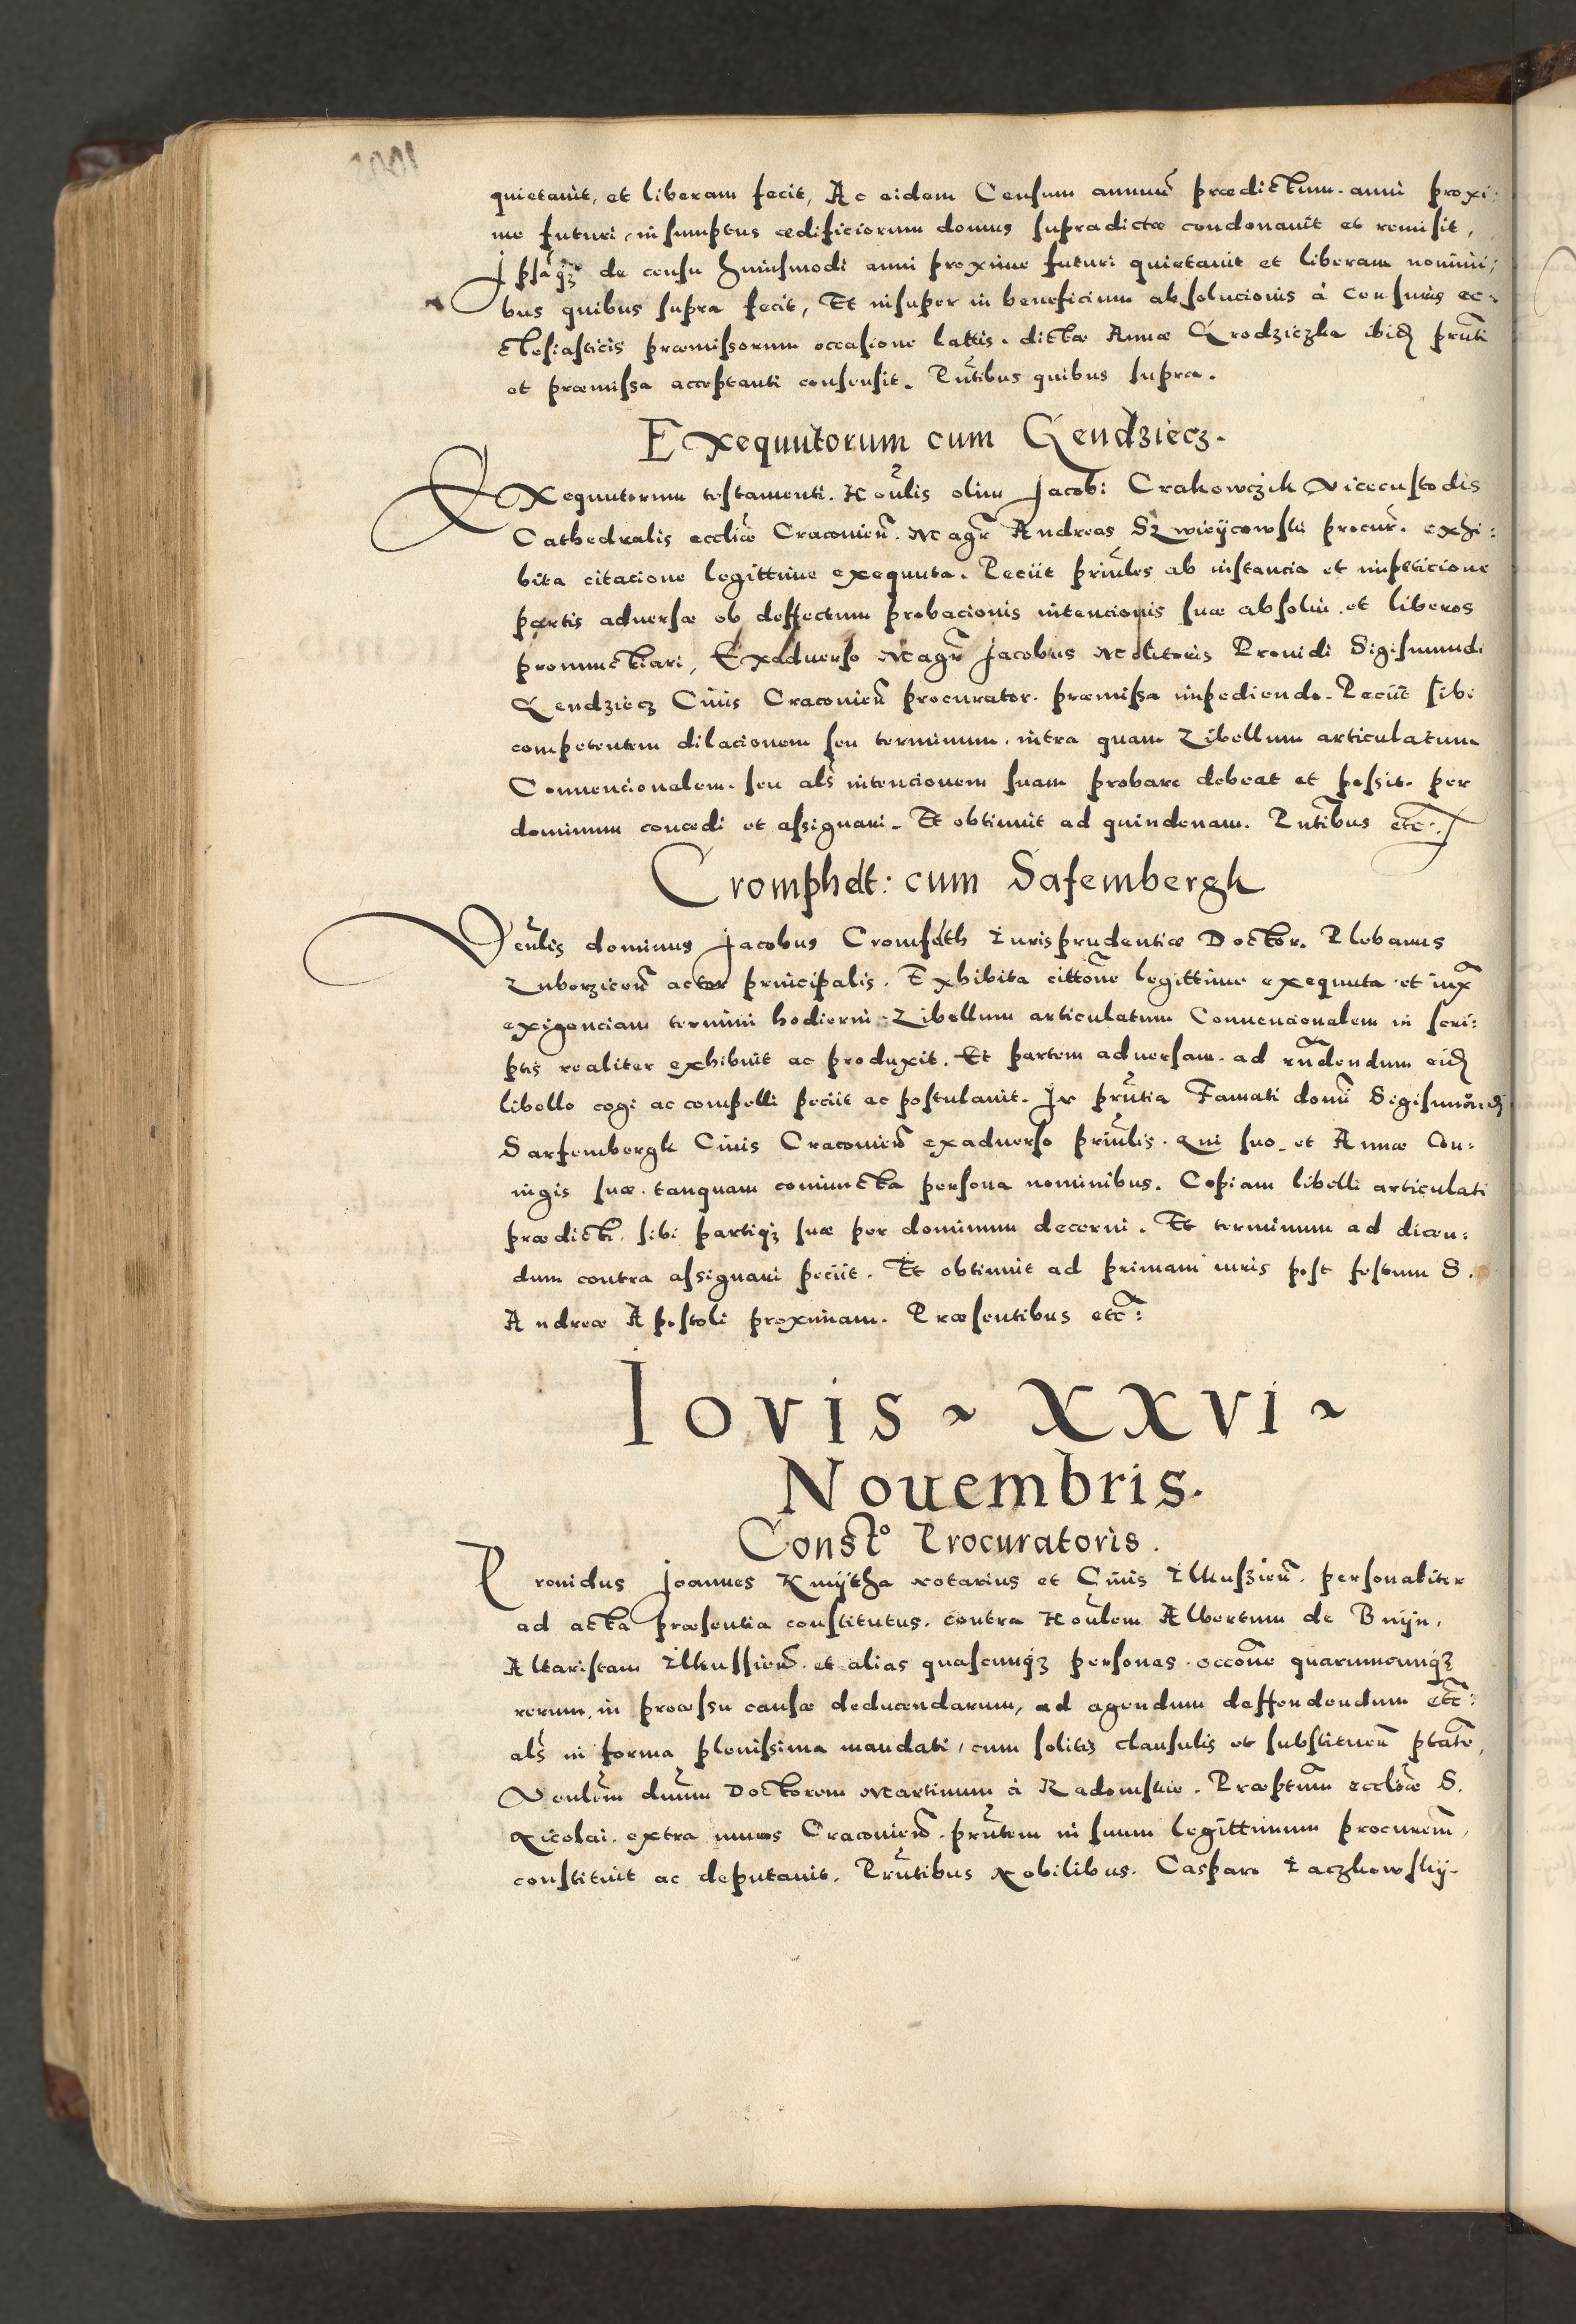 quietauit, et liberam fecit, Ac eidem Censum annuū prædictum. anni proxi:
me futuri, in sumptus ædificiorum domus supradictæ condonauit et remisit,
Ipsāqꝫ de censu huiusmodi anni proxime futuri quietauit et liberam nomini:
bus quibus supra fecit, Et insuper in beneficium absolucionis à Censuris ec:
clesiasticis præmissorum occasione lattis. dictæ Annæ Grodziczka ibid prnti
et præmissa acceptanti consensit. Pntibus quibus supra.
Exequutorum cum Gendziecz.
Exequutorum testamenti. Honlis olim Jacobi Crakowczik Vicecustodis
Cathedralis eccliæ Cracouien. Magr Andreas Skwieycowski procur. exhi:
bita citacione legittime exequuta. Peciit prinles ab instancia et impeticione
partis aduersæ ob deffectum probacionis intencionis suæ absolui et liberos
pronunctiari, Exaduerso Magr Jacobus Molitoris Prouidi Sigismundi
Gendziecz Ciuis Cracouien procurator. præmissa impediendo. Peciit sibi
competentem dilacionem seu terminum. intra quam Libellum articulatum
Conuencionalem. seu als intencionem suam probare debeat et possit. per
dominum concedi et assignari. Et obtinuit ad quindenam. Pntibus etc.
Cromphelt: cum Safembergk
Venlis dominus Jacobus Cromfelth Iurisprudentiæ Doctor. Plebanus
Luborzicen actor principalis. Exhibita cittone legittime exequuta et iux
exigenciam termini hodierni Libellum articulatum Conuencionalem in scri:
ptis realiter exhibuit ac produxit. Et partem aduersam. ad rndendum eid
libello cogi ac compelli peciit ac postulauit. In prntia Famati domi Sigismundi
Sarfembergk Ciuis Cracouien exaduerso prinlis. Qui suo et Annæ Con:
iugis suæ tanquam coniuncta persona nominibus. Copiam libelli articulati
prædicti. sibi partiqꝫ suæ per dominum decerni. Et terminum ad dicen:
dum contra assignari peciit. Et obtinuit ad primam iuris post festum S.
Andreæ Apostoli proximam. Præsentibus etc:
Iovis ~ XXVI ~
Nouembris.
Constᵒ Procuratoris.
Prouidus Joannes Kmytha Notarius et Ciuis Ilkuszien. personaliter
ad acta præsentia constitutus. contra Honlem Albertum de Bnyn,
Altaristam Ilkussien. et alias quascunqꝫ personas. occone quarumcunqꝫ
rerum. in processu causæ deducendarum, ad agendum deffendendum etc:
als in forma plenissima mandati, cum solitis clausulis et substituen ptate,
Venlem dnum Doctorem Martinum à Radomskie. Præptum eccliæ S.
Nicolai. extra muros Cracouien. prntem in suum legittimum procurem,
constituit ac deputauit. Prntibus Nobilibus. Caspare Laczkowsky.